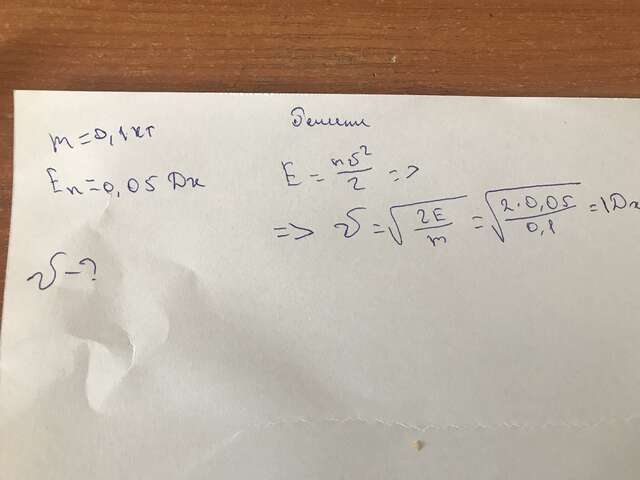 m=0,1 кг
Eп=0,05 Дж
v-?
Решени
E = mv²/2 =>
=> v = √(2E/m) = √(2·0,05/0,1) = 1Дж